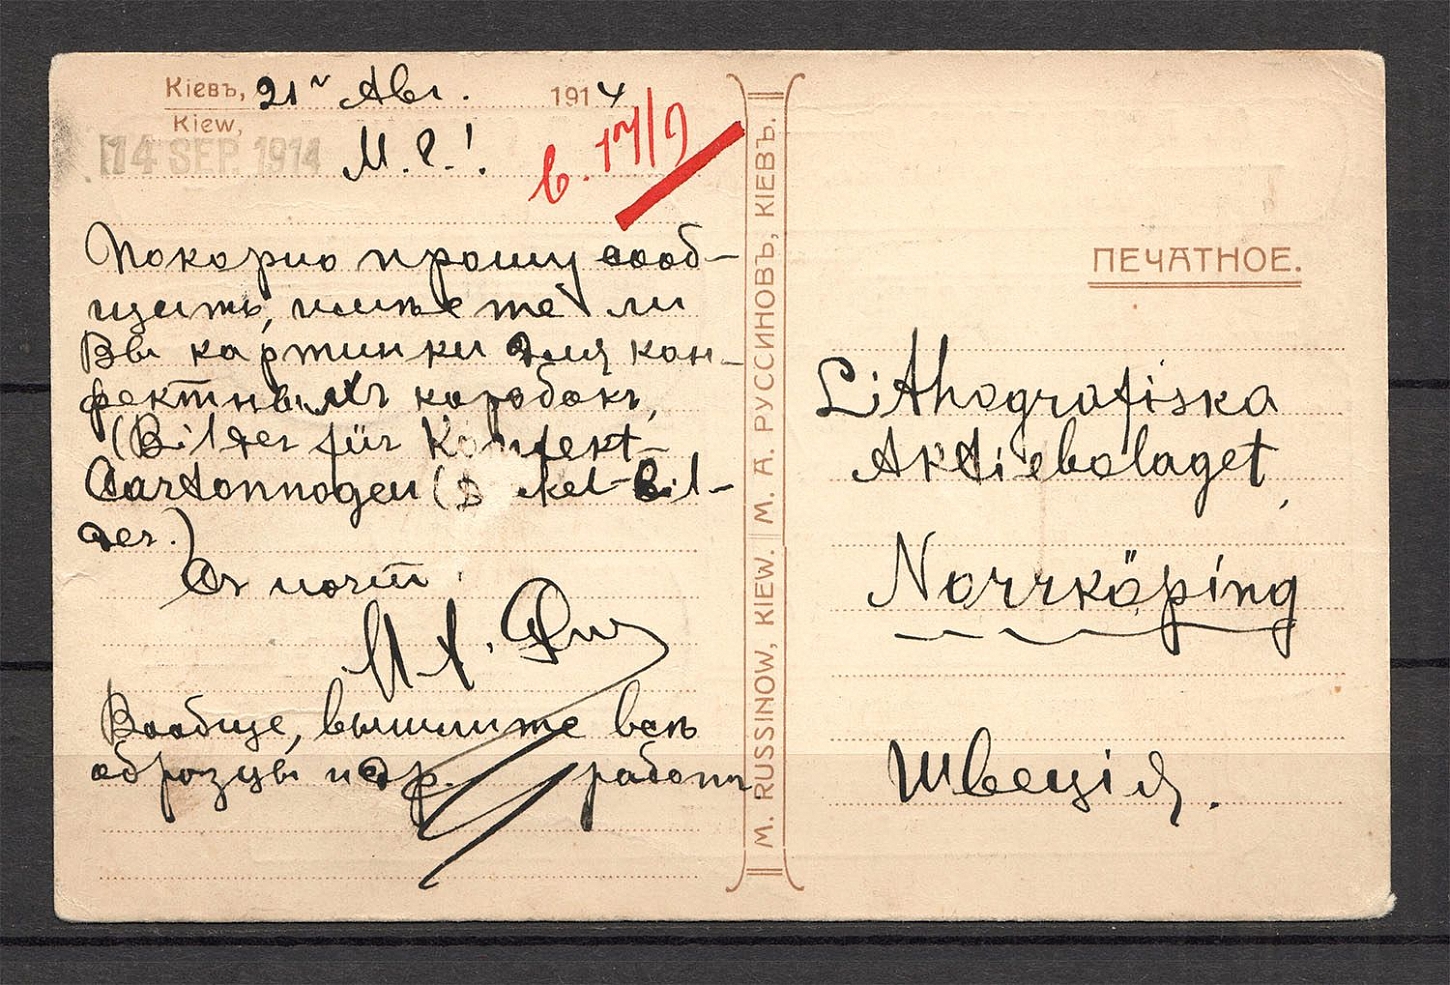 Кіевъ, 21 Авг. 1914
Kiew,
14 SEP. 1914
М. Г.!
b. 17/9
Покорно прошу сооб-
щить, имѣете ли
Вы картинки для кон-
фектныхъ коробокъ,
(Bilder für Konfekt-
Cartonnagen (Deckel-Bil-
der.)
Съ почт.
Вообще, вышлите всѣ
образцы и др. работъ
M. RUSSINOW, KIEW. М. А. РУССИНОВЪ, КІЕВЪ.
ПЕЧАТНОЕ.
Lithografiska
Aktiebolaget,
Norrköping
Швеція.